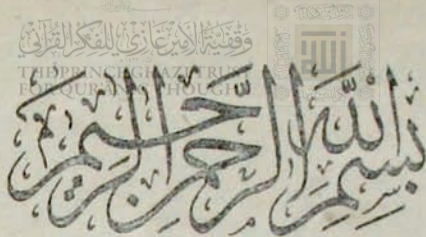 وقفية الأمير غازي للفكر القرآني
THE PRINCE GHAZI TRUST
FOR QUR'ANIC THOUGHT
بسم الله الرحمن الرحيم